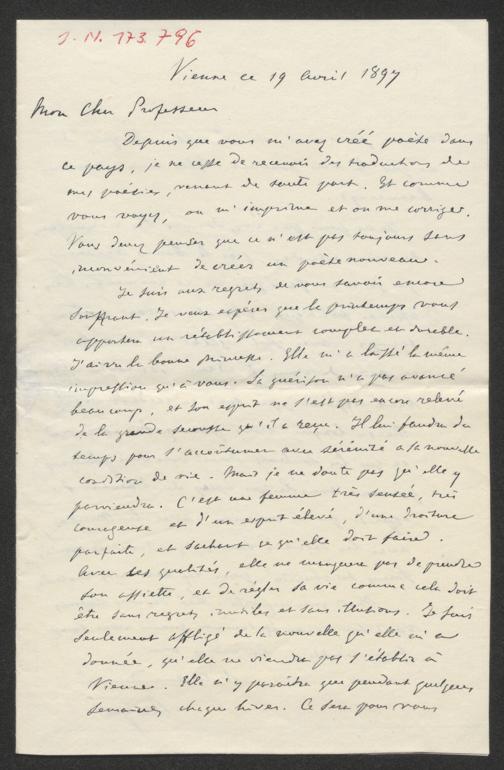 J. N. 173.796
Vienne ce 19 Avril 1897
Mon Cher Professeur
Depuis que vous m'avez créé poète dans
ce pays, je ne cesse de recevoir des traductions de
mes poésies, venant de toute part. Et comme
vous voyez, on m'imprime et on me corrige.
Vous devez penser que ce n'est pas toujours sans
inconvénient de créer un poète nouveau.
Je suis aux regrets de vous savoir encore
souffrant. Je veux espérer que le printemps vous
apportera un rétablissement complet et durable.
J'ai vu la bonne princesse. Elle m'a laissé la même
impression qu'à vous. Sa guérison n'a pas avancé
beaucoup, et son esprit ne s'est pas encore relevé
de la grande secousse qu'il a reçue. Il lui faudra du
temps pour s'accoutumer avec sérénité a sa nouvelle
condition de vie. Mais je ne doute pas qu'elle y
parviendra. C'est une femme très sensée, très
courageuse et d'un esprit élevé, d'une droiture
parfaite, et sachant ce qu'elle doit faire.
Avec ses qualités, elle ne manquera pas de prendre
son assiette, et de régler sa vie comme cela doit
être sans regrets inutiles et sans illusions. Je suis
seulement affligé de la nouvelle qu'elle m'a
donnée, qu'elle ne viendra pas s'établir à
Vienne. Elle n'y paraîtra que pendant quelques
semaines chaque hiver. Ce sera pour vous